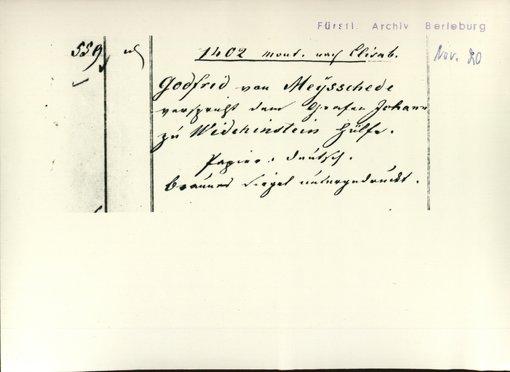 Fürstl. Archiv Berleburg
559 1402 mont. nach Elisab. Nov. 20
Godfrid von Meysschede
verspricht dem Grafen Johann
zu Widchinstein Hülfe.
Papier. deutsch.
braunes Siegel untergedruckt.